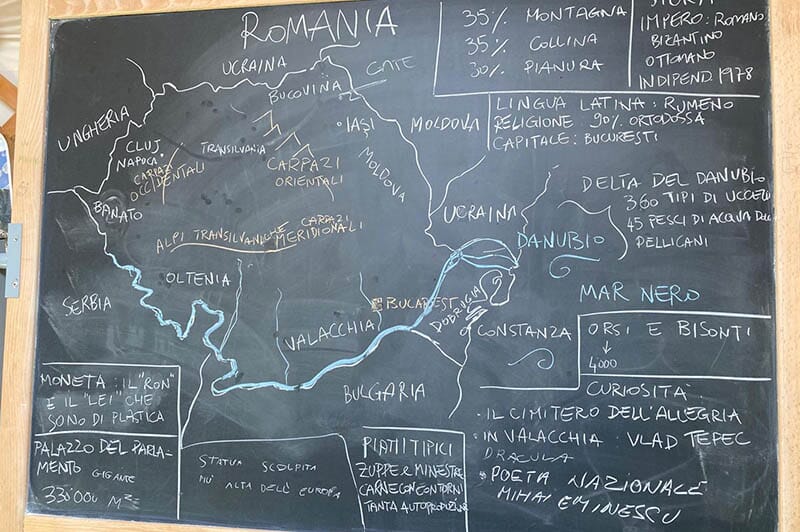 ROMANIA
35% MONTAGNA
35% COLLINA
30% PIANURA
STORIA
IMPERO: ROMANO
BIZANTINO
OTTOMANO
INDIPEND. 1978
LINGUA LATINA: RUMENO
RELIGIONE 90% ORTODOSSA
CAPITALE: BUCURESTI
UCRAINA
BUCOVINA
UNGHERIA
IAȘI
MOLDOVA
CLUJ
NAPOCA
TRANSILVANIA
CARPAZI
OCCIDENTALI
CARPAZI
ORIENTALI
MOLDOVA
BANATO
ALPI TRANSILVANICHE
CARPAZI
MERIDIONALI
UCRAINA
DELTA DEL DANUBIO
360 TIPI DI UCCELLI
45 PESCI DI ACQUA DOLCE
PELLICANI
DANUBIO
OLTENIA
SERBIA
BUCAREST
VALACCHIA
DOBRUGIA
MAR NERO
CONSTANZA
ORSI E BISONTI
4000
BULGARIA
MONETA: IL "RON"
E IL "LEI" CHE
SONO DI PLASTICA
PALAZZO DEL PARLA-
MENTO GIGANTE
330'000 M²
STATUA SCOLPITA
PIÙ ALTA DELL'EUROPA
PIATTI TIPICI
ZUPPE E MINESTRE
CARNE CON CONTORNI
TANTA AUTOPRODUZIONE
CURIOSITÀ
• IL CIMITERO DELL'ALLEGRIA
• IN VALACCHIA: VLAD TEPEC
DRACULA
• POETA NAZIONALE
MIHAI EMINESCU